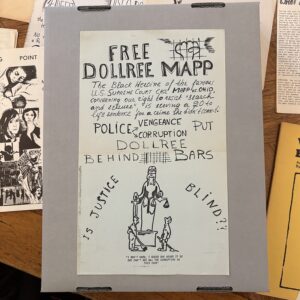 POINT
FREE
DOLLREE MAPP
The Black Heroine of the famous
U.S. Supreme Court case MAPP vs OHIO,
concerning our right to resist "search
and seizure", is serving a 20-to
life sentence for a crime she didn't commit
POLICE VENGEANCE PUT
CORRUPTION
DOLLREE
BEHIND BARS
IS JUSTICE BLIND??